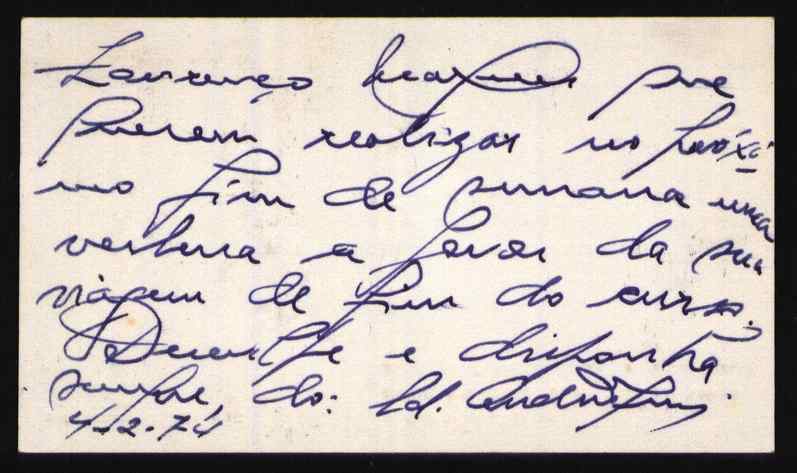 Lourenço Marques que
querem realizar no próxi-
mo fim de semana uma
verbena a favor da sua
viagem de fim do curso.
Desculpe e disponha
sempre, do:
4-2-74